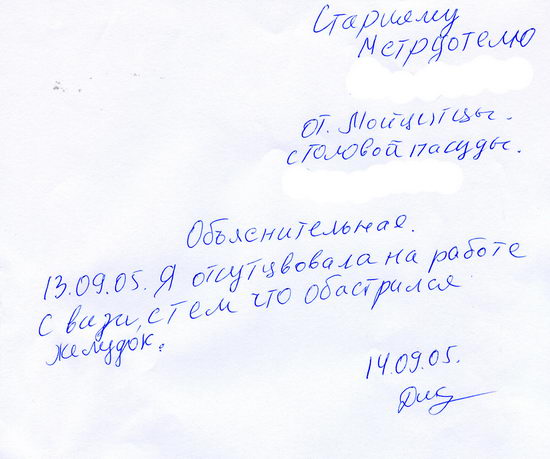 Старшему
Метрдотелю
от. Мойщитцы.
столовой пасуды.
Объяснительная.
13.09.05. Я отсутцвовала на работе
с визи, с тем что обастрился
желудок.
14.09.05.